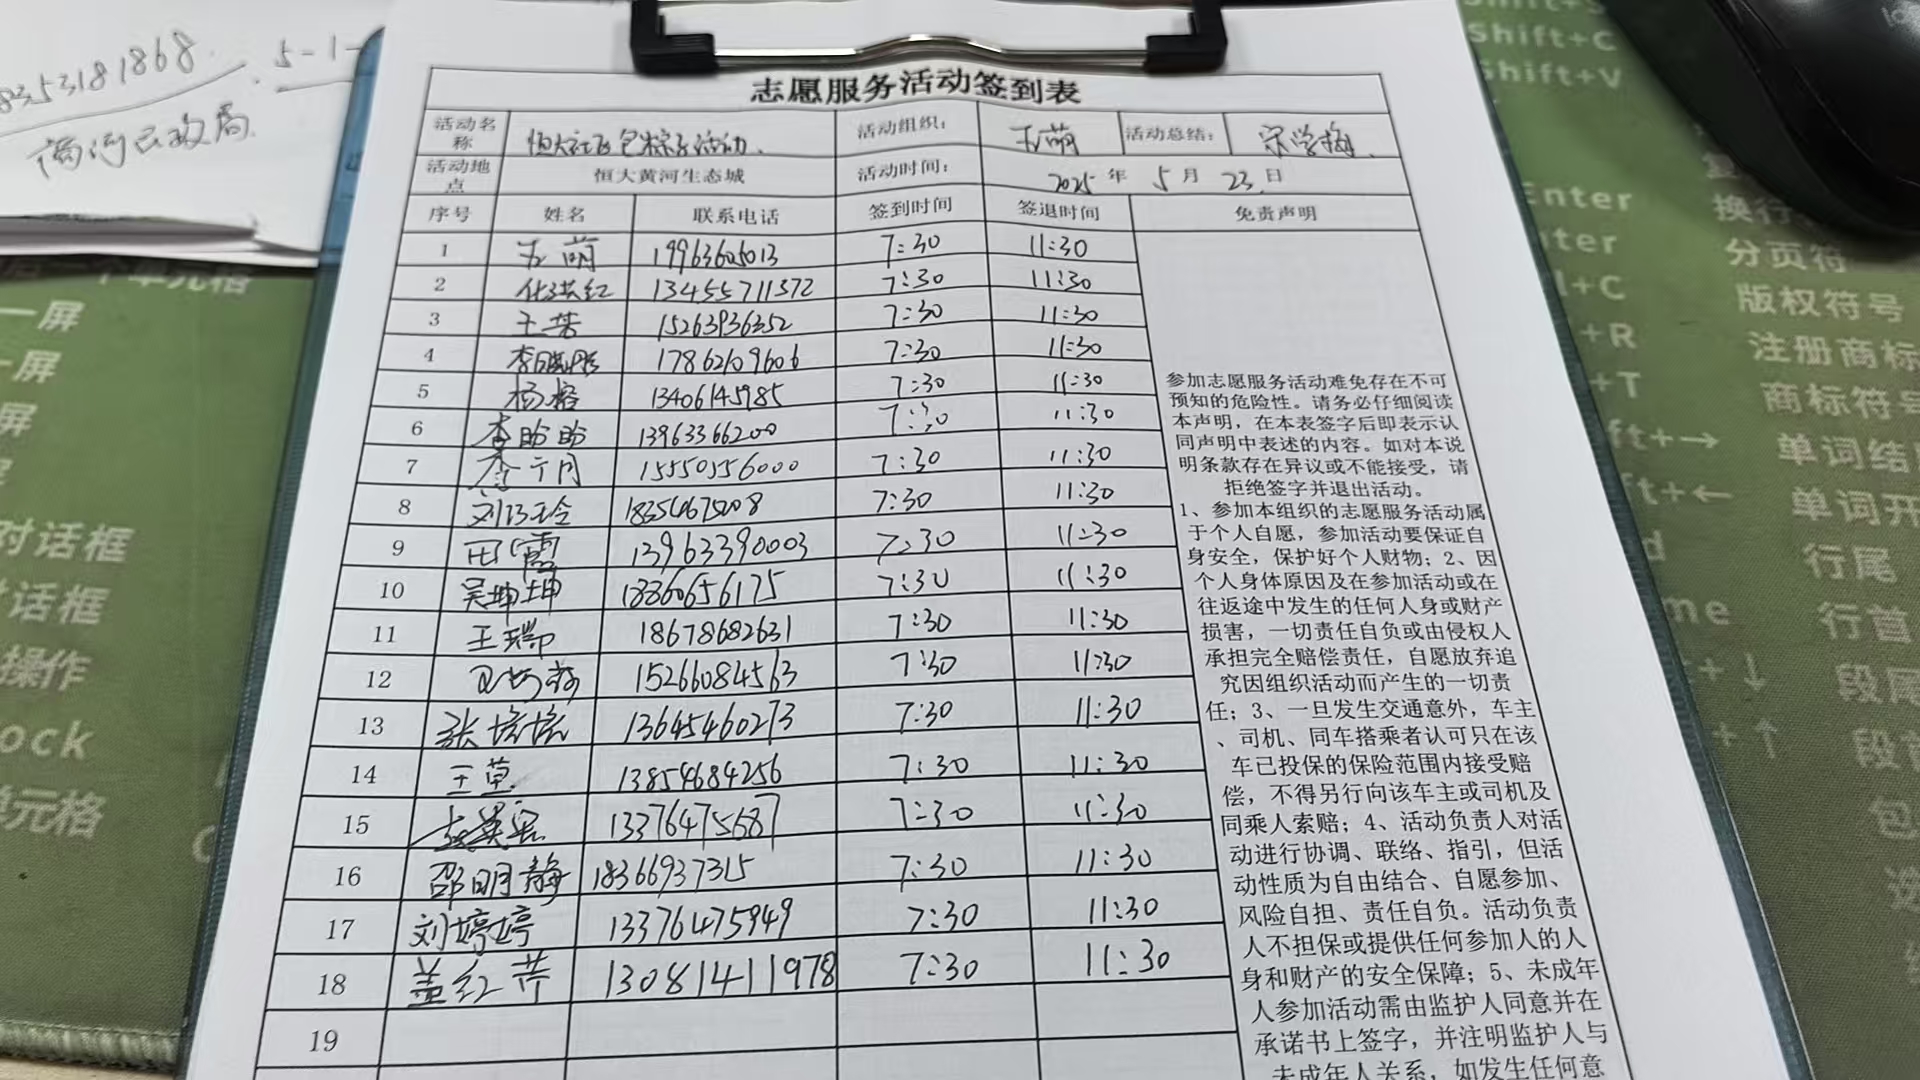 志愿服务活动签到表
活动名称 恒大社区包粽子活动. 活动组织: 王萌 活动总结: 宋学梅.
活动地点 恒大黄河生态城 活动时间: 2025 年 5 月 23 日
序号 姓名 联系电话 签到时间 签退时间 免责声明
1 王萌 19963605013 7:30 11:30
2 13455711372 7:30 11:30
3 15263936352 7:30 11:30
4 17862109606 7:30 11:30
5 杨榕 13406145985 7:30 11:30
6 李盼盼 13963366200 7:30 11:30
7 15550556000 7:30 11:30
8 7:30 11:30
9 田霞 13963390003 7:30 11:30
10 吴坤坤 18860656175 7:30 11:30
11 王瑞 18678682631 7:30 11:30
12 15266084563 7:30 11:30
13 张培培 13645460273 7:30 11:30
14 王草 13854684256 7:30 11:30
15 13376475687 7:30 11:30
16 邵明静 18366937315 7:30 11:30
17 刘婷婷 13376475949 7:30 11:30
18 盖红芹 13081411978 7:30 11:30
19
参加志愿服务活动难免存在不可
预知的危险性。请务必仔细阅读
本声明，在本表签字后即表示认
同声明中表述的内容。如对本说
明条款存在异议或不能接受，请
拒绝签字并退出活动。
1、参加本组织的志愿服务活动属
于个人自愿，参加活动要保证自
身安全，保护好个人财物；2、因
个人身体原因及在参加活动或在
往返途中发生的任何人身或财产
损害，一切责任自负或由侵权人
承担完全赔偿责任，自愿放弃追
究因组织活动而产生的一切责
任；3、一旦发生交通意外，车主
、司机、同车搭乘者认可只在该
车已投保的保险范围内接受赔
偿，不得另行向该车主或司机及
同乘人索赔；4、活动负责人对活
动进行协调、联络、指引，但活
动性质为自由结合、自愿参加、
风险自担、责任自负。活动负责
人不担保或提供任何参加人的人
身和财产的安全保障；5、未成年
人参加活动需由监护人同意并在
承诺书上签字，并注明监护人与
未成年人关系，如发生任何意
8353181868. 5-1-
商河民政局
一屏
屏
对话框
话框
操作
ock
单元格
Shift+C
Shift+V
Enter
+C
+R
+T
换行
分页符
版权符号
注册商标
商标符号
单词结
单词开
行尾
行首
段尾
段首